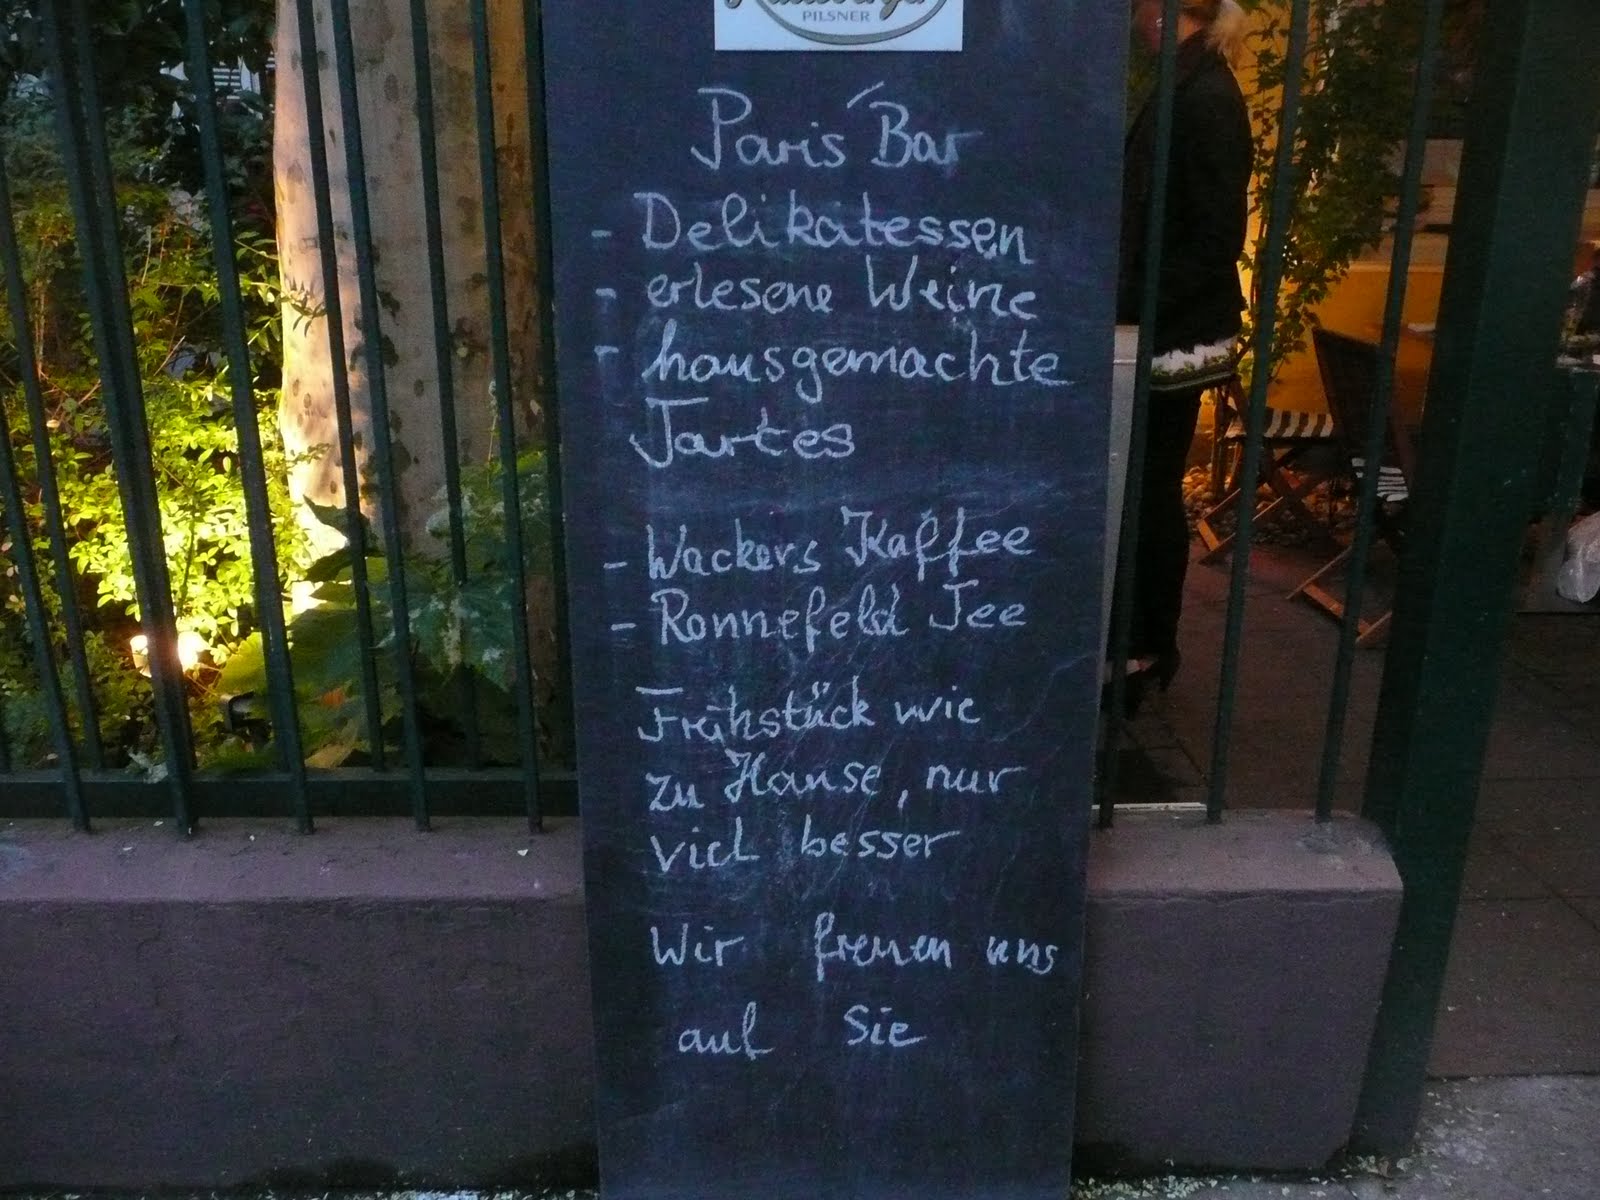 PILSNER
Paris' Bar
- Delikatessen
- erlesene Weine
- hausgemachte
Tartes
- Wackers Kaffee
- Ronnefeld Tee
Frühstück wie
zu Hause, nur
viel besser
Wir freuen uns
auf Sie